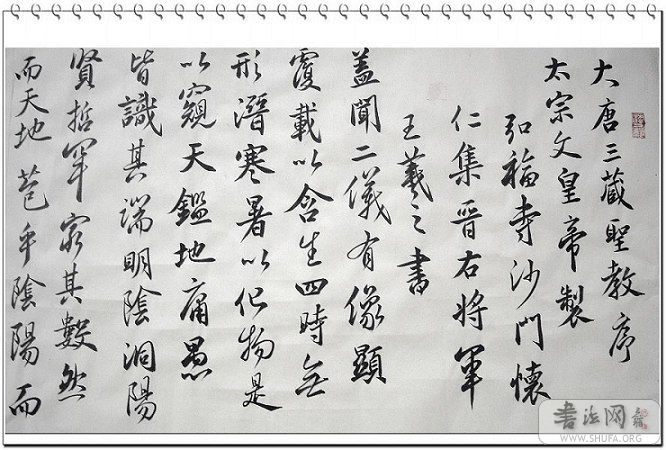 大唐三藏聖教序
太宗文皇帝製
弘福寺沙門懷
仁集晉右將軍
王羲之書
蓋聞二儀有像顯
覆載以含生四時無
形潛寒暑以化物是
以窺天鑑地庸愚
皆識其端明陰洞陽
賢哲罕窮其數然
而天地苞乎陰陽而
書法网
WWW.SHUFA.ORG